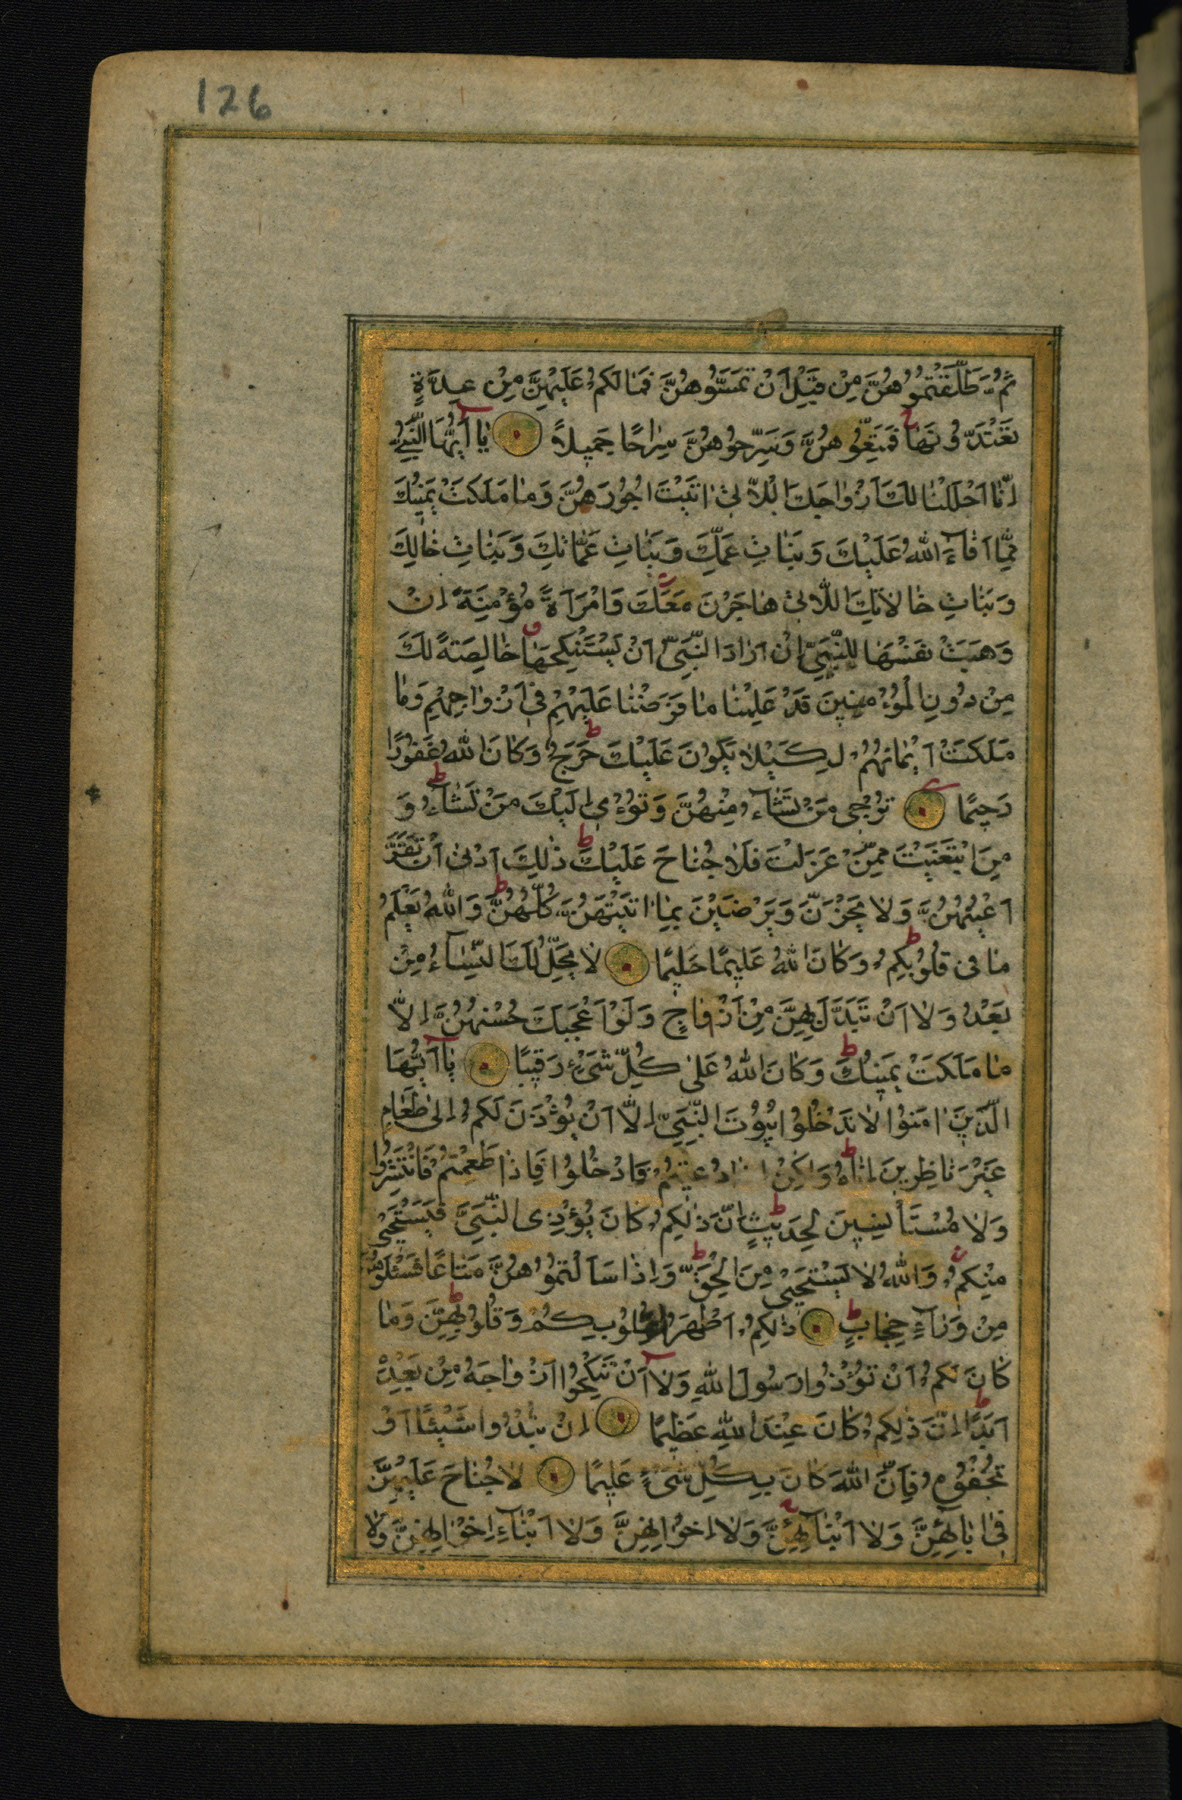 126
ثُمَّ طَلَّقْتُمُوهُنَّ مِنْ قَبْلِ اَنْ تَمَسُّوهُنَّ فَمَا لَكُمْ عَلَيْهِنَّ مِنْ عِدَّةٍ
تَعْتَدُّونَهَا فَمَتِّعُوهُنَّ وَسَرِّحُوهُنَّ سَرَاحًا جَمِيلًا يَا اَيُّهَا النَّبِيُّ
اِنَّا اَحْلَلْنَا لَكَ اَزْوَاجَكَ الْلَّاتِى اتَيْتَ اُجُورَهُنَّ وَمَا مَلَكَتْ يَمِينُكَ
مِمَّا اَفَاءَ اللهُ عَلَيْكَ وَبَنَاتِ عَمِّكَ وَبَنَاتِ عَمَّاتِكَ وَبَنَاتِ خَالِكَ
وَبَنَاتِ خَالَاتِكَ اللَّاتِى هَاجَرْنَ مَعَكَ وَامْرَاَةً مُؤْمِنَةً اِنْ
وَهَبَتْ نَفْسَهَا لِلنَّبِيِّ اِنْ اَرَادَ النَّبِيُّ اَنْ يَسْتَنْكِحَهَا خَالِصَةً لَكَ
مِنْ دُونِ الْمُؤْمِنِينَ قَدْ عَلِمْنَا مَا فَرَضْنَا عَلَيْهِمْ فِى اَزْوَاجِهِمْ وَمَا
مَلَكَتْ اَيْمَانُهُمْ لِكَيْلَا يَكُونَ عَلَيْكَ حَرَجٌ وَكَانَ اللهُ غَفُورًا
رَحِيمًا تُرْجِى مَنْ تَشَاءُ مِنْهُنَّ وَتُؤْوِى اِلَيْكَ مَنْ تَشَاءُ وَ
مَنِ ابْتَغَيْتَ مِمَّنْ عَزَلْتَ فَلَا جُنَاحَ عَلَيْكَ ذٰلِكَ اَدْنٰى اَنْ تَقَرَّ
اَعْيُنُهُنَّ وَلَا يَحْزَنَّ وَيَرْضَيْنَ بِمَا اتَيْتَهُنَّ كُلُّهُنَّ وَاللهُ يَعْلَمُ
مَا فِى قُلُوبِكُمْ وَكَانَ اللهُ عَلِيمًا حَلِيمًا لَا يَحِلُّ لَكَ النِّسَاءُ مِنْ
بَعْدُ وَلَا اَنْ تَبَدَّلَ بِهِنَّ مِنْ اَزْوَاجٍ وَلَوْ اَعْجَبَكَ حُسْنُهُنَّ اِلَّا
مَا مَلَكَتْ يَمِينُكَ وَكَانَ اللهُ عَلٰى كُلِّ شَىْءٍ رَقِيبًا يَا اَيُّهَا
الَّذِينَ امَنُوا لَا تَدْخُلُوا بُيُوتَ النَّبِيِّ اِلَّا اَنْ يُؤْذَنَ لَكُمْ اِلٰى طَعَامٍ
غَيْرَ نَاظِرِينَ اِنَاهُ وَلٰكِنْ اِذَا دُعِيتُمْ فَادْخُلُوا فَاِذَا طَعِمْتُمْ فَانْتَشِرُوا
وَلَا مُسْتَأْنِسِينَ لِحَدِيثٍ اِنَّ ذٰلِكُمْ كَانَ يُؤْذِى النَّبِيَّ فَيَسْتَحْيٖ
مِنْكُمْ وَاللهُ لَا يَسْتَحْيٖ مِنَ الْحَقِّ وَاِذَا سَاَلْتُمُوهُنَّ مَتَاعًا فَسْئَلُوهُنَّ
مِنْ وَرَاءِ حِجَابٍ ذٰلِكُمْ اَطْهَرُ لِقُلُوبِكُمْ وَقُلُوبِهِنَّ وَمَا
كَانَ لَكُمْ اَنْ تُؤْذُوا رَسُولَ اللهِ وَلَا اَنْ تَنْكِحُوا اَزْوَاجَهُ مِنْ بَعْدِهٖ
اَبَدًا اِنَّ ذٰلِكُمْ كَانَ عِنْدَ اللهِ عَظِيمًا اِنْ تُبْدُوا شَيْئًا اَوْ
تُخْفُوهُ فَاِنَّ اللهَ كَانَ بِكُلِّ شَىْءٍ عَلِيمًا لَا جُنَاحَ عَلَيْهِنَّ
فِى ابَائِهِنَّ وَلَا اَبْنَائِهِنَّ وَلَا اِخْوَانِهِنَّ وَلَا اَبْنَاءِ اِخْوَانِهِنَّ وَلَا